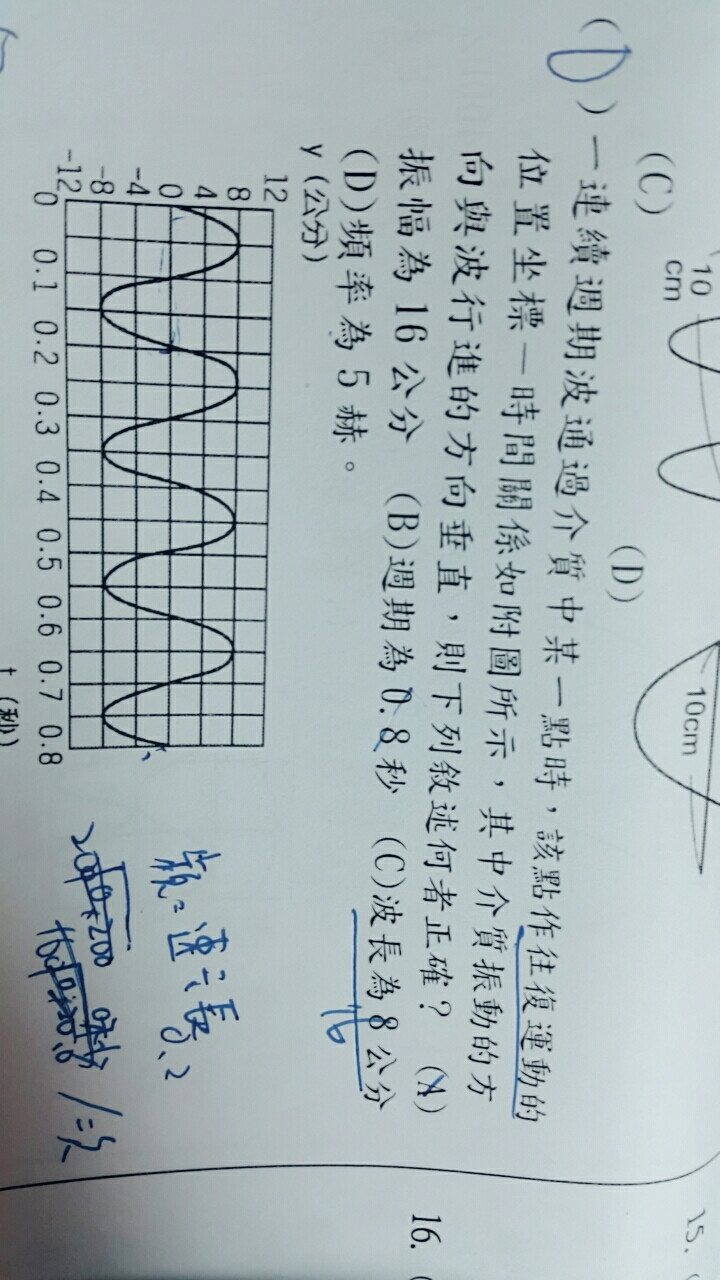 10
cm
10cm
(C)
(D)
15.
(D)一連續週期波通過介質中某一點時，該點作往復運動的
位置坐標－時間關係如附圖所示，其中介質振動的方
向與波行進的方向垂直，則下列敘述何者正確？ (A)
振幅為16公分 (B)週期為0.8秒 (C)波長為8公分
16
(D)頻率為5赫。
y (公分)
12
8
4
0
-4
-8
-12
0 0.1 0.2 0.3 0.4 0.5 0.6 0.7 0.8
t (秒)
0.2
16.